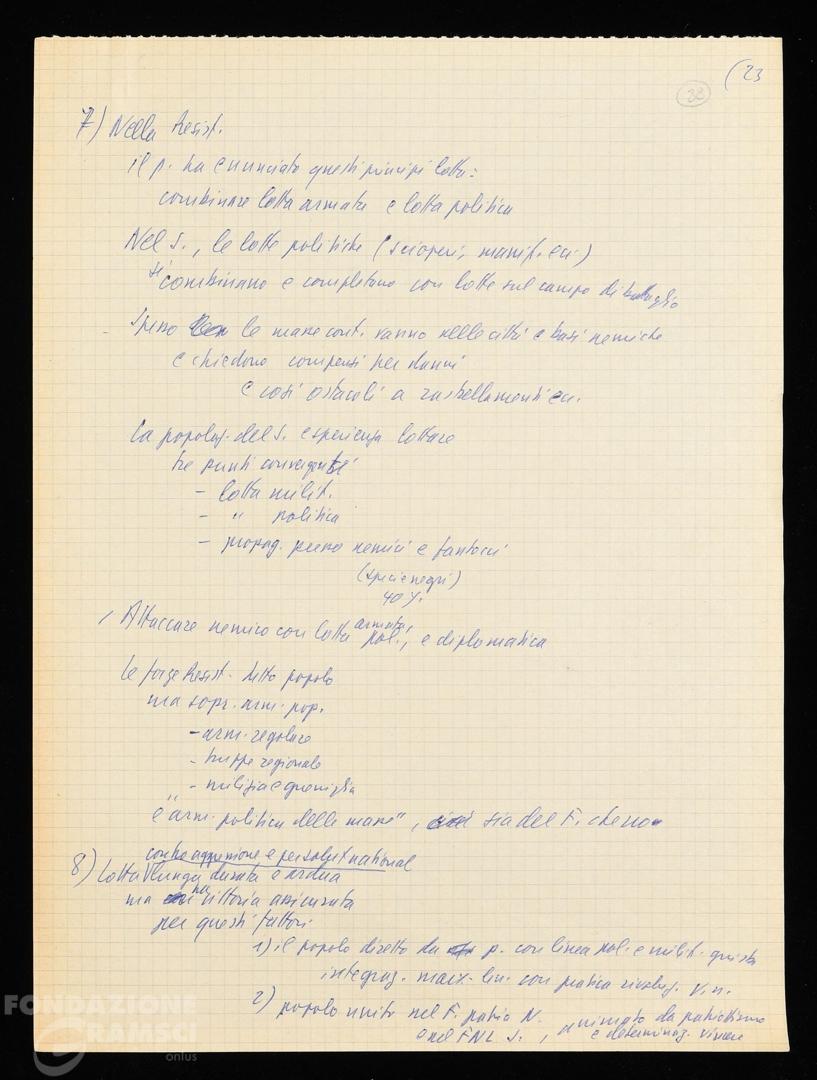 (23
38
7) Nella Resist.
il p. ha enunciato questi principi lotta:
combinare lotta armata e lotta politica
Nel S., le lotte politiche (scioperi, manif. ecc.)
si combinano e completano con lotte sul campo di battaglia
Spesso le masse cont. vanno nelle città e basi nemiche
e chiedono compensi per danni
e così ostacoli a rastrellamenti ecc.
la popolaz. del S. esperienza lottare
tre punti convergenti
- lotta milit.
- " politica
- propag. presso nemici e fantocci
(specie negri)
40%
Attaccare nemico con lotta armata, pol., e diplomatica
le forze Resist. tutto popolo
ma sopr. arm. pop.
- arm. regolare
- truppe regionale
- milizia e guerriglia
e "arm. politica delle masse", sia del F. che no
contro aggressione e per salvezza national
8) Lotta lunga durata e ardua
ma ha vittoria assicurata
per questi fattori
1) il popolo diretto da p. con linea pol. e milit. giusta
integraz. marx-len. con pratica rivoluz. V.n.
2) popolo unito nel F. patria N.
e nel FNL S., animato da patriottismo
e determinaz. vincere
FONDAZIONE
GRAMSCI
onlus